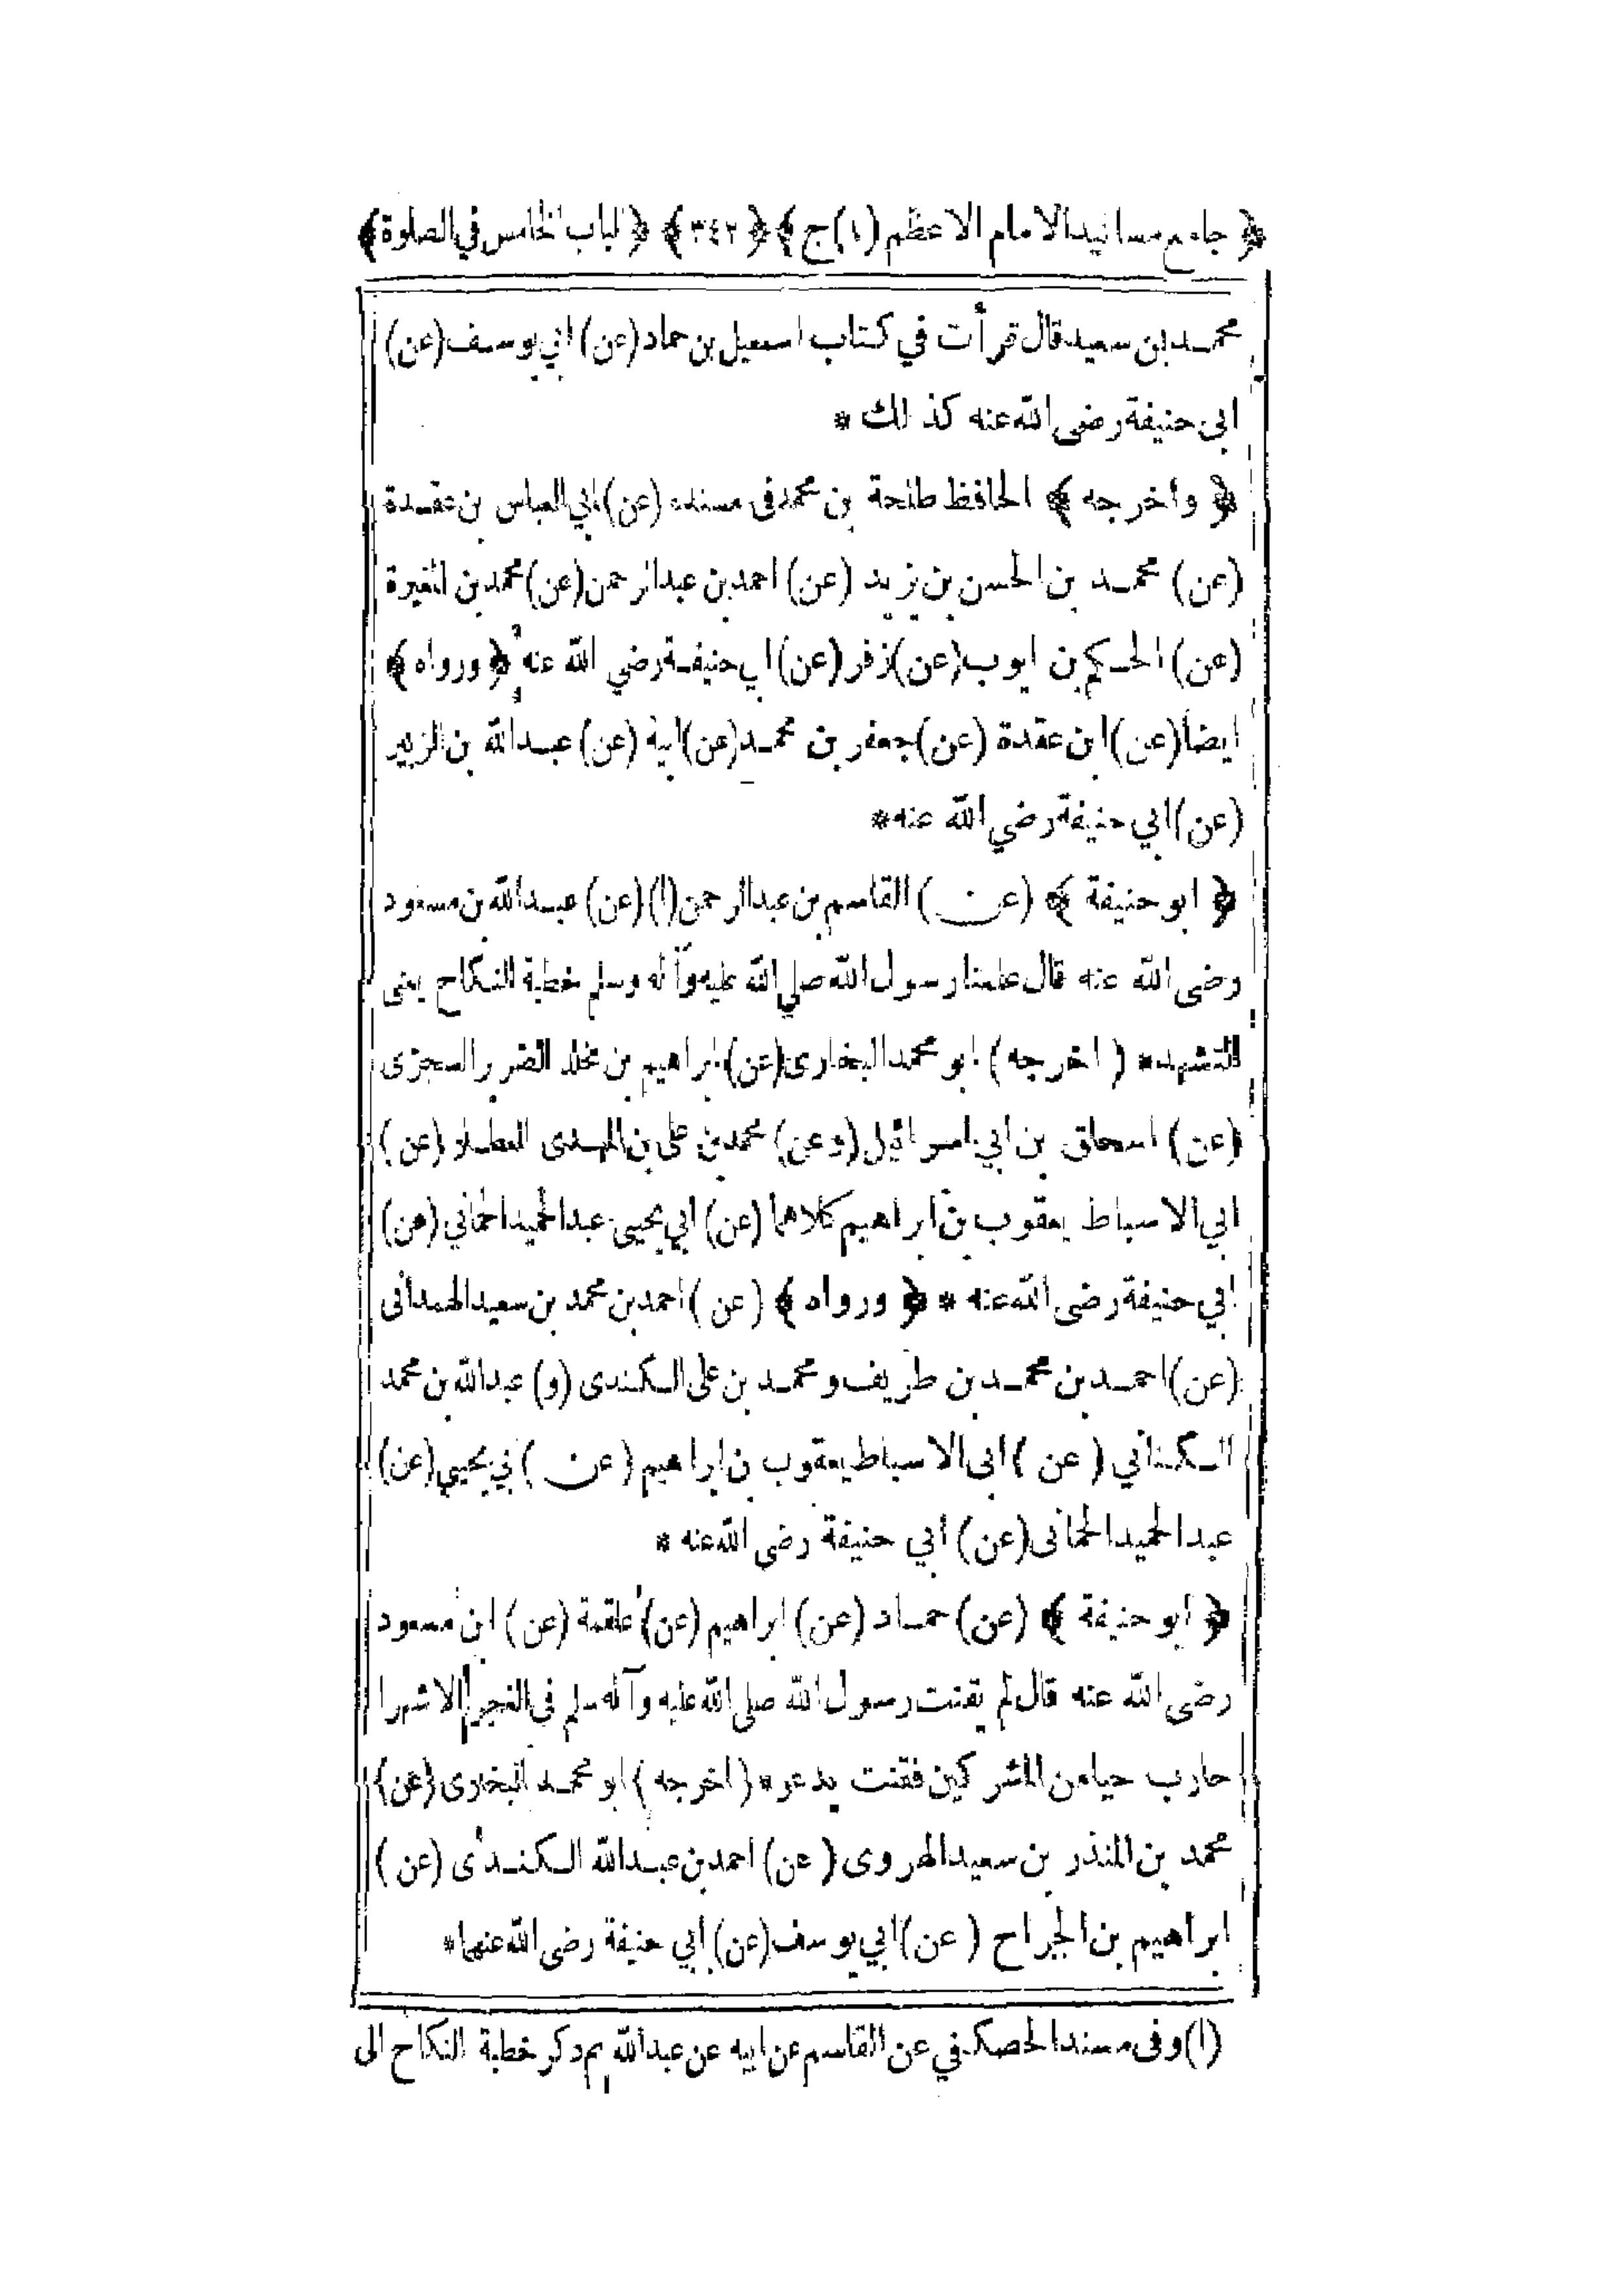 ﴿ جامع مسانيد الامام الاعظم (١) ج ﴾ ﴿ ٣٤٢ ﴾ ﴿ الباب الخامس في الصلوة ﴾
محمد بن سعيد قال قرأت في كتاب اسمعيل بن حماد (عن) ابي يوسف (عن)
ابي حنيفة رضى الله عنه كذلك *
﴿ وأخرجه ﴾ الحافظ طلحة بن محمد فى مسنده (عن) ابي العباس بن عقدة
(عن) محمد بن الحسن بن يزيد (عن) احمد بن عبد الرحمن (عن) محمد بن المغيرة
(عن) الحكم بن ايوب (عن) زفر (عن) ابي حنيفة رضي الله عنه ﴿ ورواه ﴾
ايضا (عن) ابن عقدة (عن) جعفر بن محمد (عن) ابيه (عن) عبد الله بن الزبير
(عن) ابي حنيفة رضي الله عنه *
﴿ ابو حنيفة ﴾ (عن) القاسم بن عبد الرحمن (١) (عن) عبد الله بن مسعود
رضى الله عنه قال علمنا رسول الله صلى الله عليه وآله وسلم خطبة النكاح يعنى
التشهد * ( اخرجه ) ابو محمد البخارى (عن) ابراهيم بن مخلد الضرير السجزى
(عن) اسحاق بن ابي اسرائيل (وعن) محمد بن على بن المهدى العطار (عن)
ابي الاسباط يعقوب بن ابراهيم كلاهما (عن) ابي يحيى عبد الحميد الحماني (عن)
ابي حنيفة رضى الله عنه * ﴿ ورواه ﴾ (عن) احمد بن محمد بن سعيد الهمدانى
(عن) احمد بن محمد بن طريف ومحمد بن على الكندى (و) عبد الله بن محمد
الكناني (عن) ابى الاسباط يعقوب بن ابراهيم (عن) ابي يحيى (عن)
عبد الحميد الحمانى (عن) ابي حنيفة رضى الله عنه *
﴿ ابو حنيفة ﴾ (عن) حماد (عن) ابراهيم (عن) علقمة (عن) ابن مسعود
رضى الله عنه قال لم يقنت رسول الله صلى الله عليه وآله سلم فى الفجر الا شهرا
حارب حيا من المشركين فقنت يدعو * ( اخرجه ) ابو محمد البخارى (عن)
محمد بن المنذر بن سعيد الهروى (عن) احمد بن عبد الله الكندى (عن)
ابراهيم بن الجراح (عن) ابي يوسف (عن) ابي حنيفة رضى الله عنهما *
(١) وفى مسند الحصكفي عن القاسم عن ابيه عن عبد الله ذكر خطبة النكاح الى